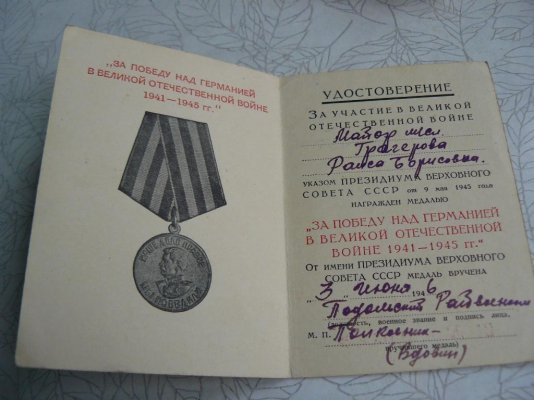 „ЗА ПОБЕДУ НАД ГЕРМАНИЕЙ
В ВЕЛИКОЙ ОТЕЧЕСТВЕННОЙ ВОЙНЕ
1941—1945 гг.“
НАШЕ ДЕЛО ПРАВОЕ
МЫ ПОБЕДИЛИ
УДОСТОВЕРЕНИЕ
ЗА УЧАСТИЕ В ВЕЛИКОЙ
ОТЕЧЕСТВЕННОЙ ВОЙНЕ
Майор м/сл
Трагерова
Раиса Борисовна.
УКАЗОМ ПРЕЗИДИУМА ВЕРХОВНОГО
СОВЕТА СССР от 9 мая 1945 года
НАГРАЖДЕН МЕДАЛЬЮ
„ЗА ПОБЕДУ НАД ГЕРМАНИЕЙ
В ВЕЛИКОЙ ОТЕЧЕСТВЕННОЙ
ВОЙНЕ 1941—1945 гг.“
ОТ ИМЕНИ ПРЕЗИДИУМА ВЕРХОВНОГО
СОВЕТА СССР МЕДАЛЬ ВРУЧЕНА
„3“ июня 1946
Подольский Райвоенком
военное звание и подпись лица,
М. П. Полковник-
вручившего медаль)
(Вдовин)